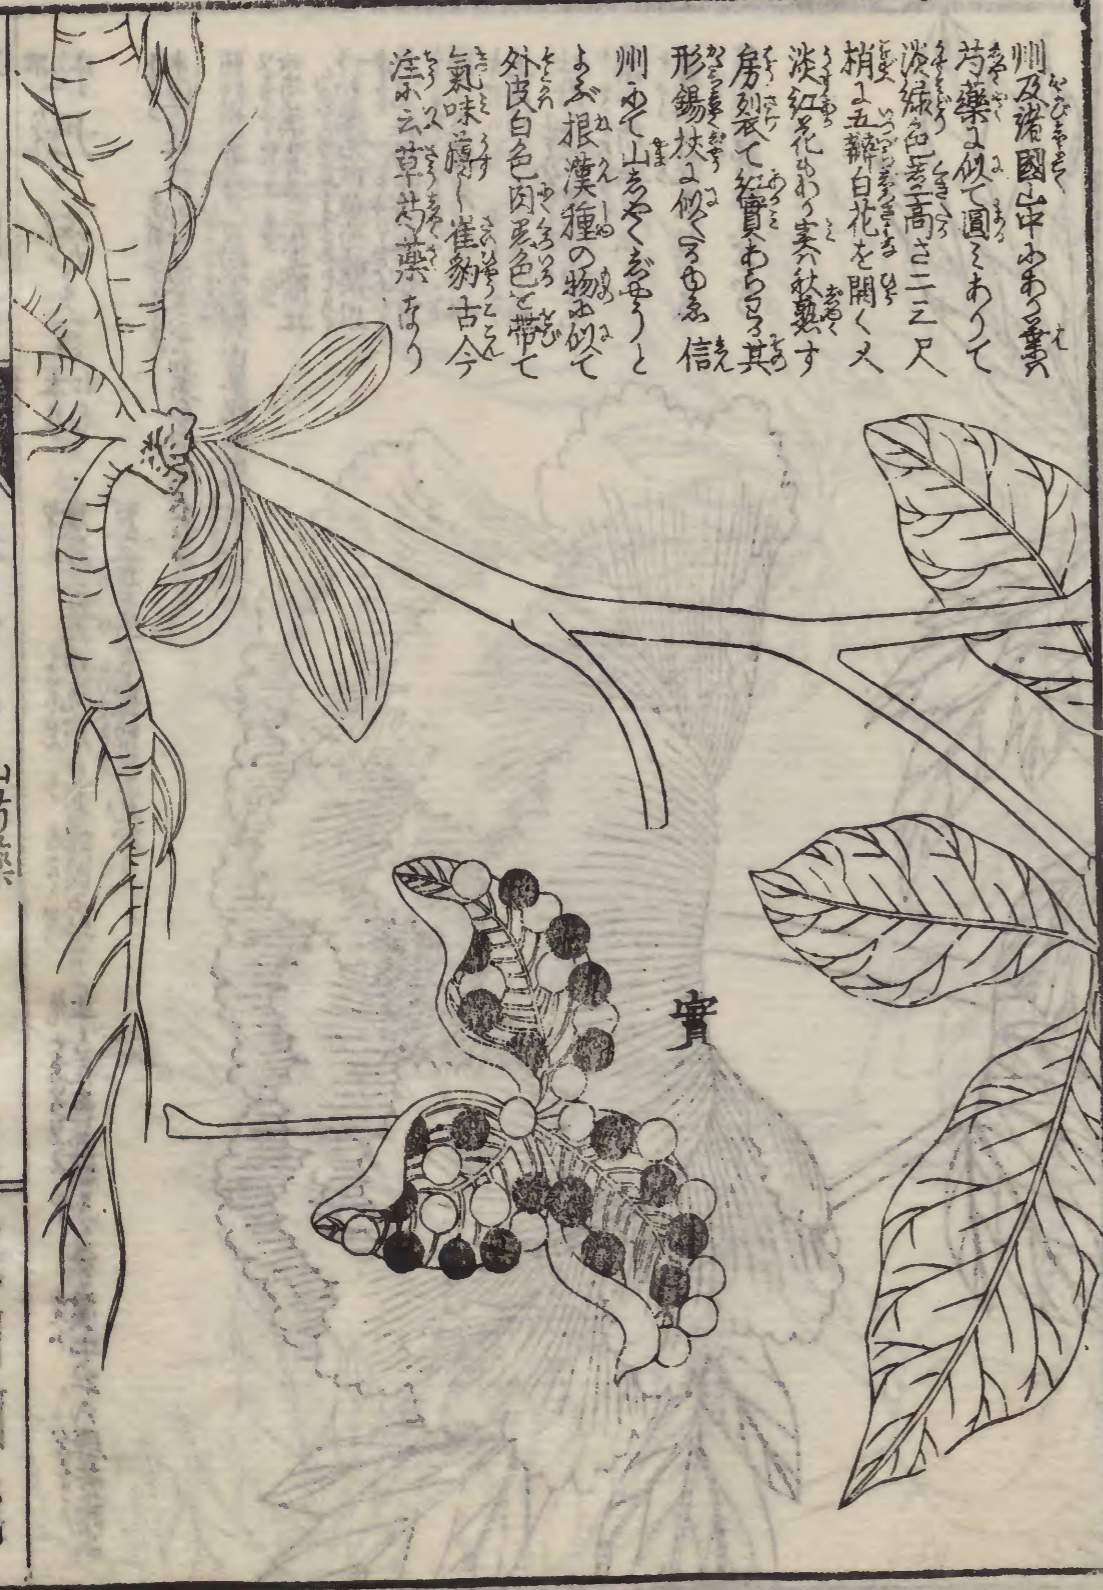 州及諸國山中にあり葉ハ
芍藥に似て圓ミありて
淡緑色莖高さ二三尺
梢に五瓣白花を開く又
淡紅花もあり実ハ秋熟す
房裂て紅實あらわる其
形錫杖に似たるゆゑ信
州にて山志やくぢやうと
よぶ根漢種の物に似て
外皮白色肉黒色を帶て
氣味薄し崔豹古今
注に云草芍藥なり
實